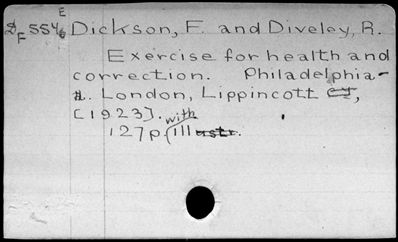 E
D 554 Dickson, F. and Diveley, R.
F 6
Exercise for health and
correction. Philadelphia-
London, Lippincott
[1923]. with
127p. (ill